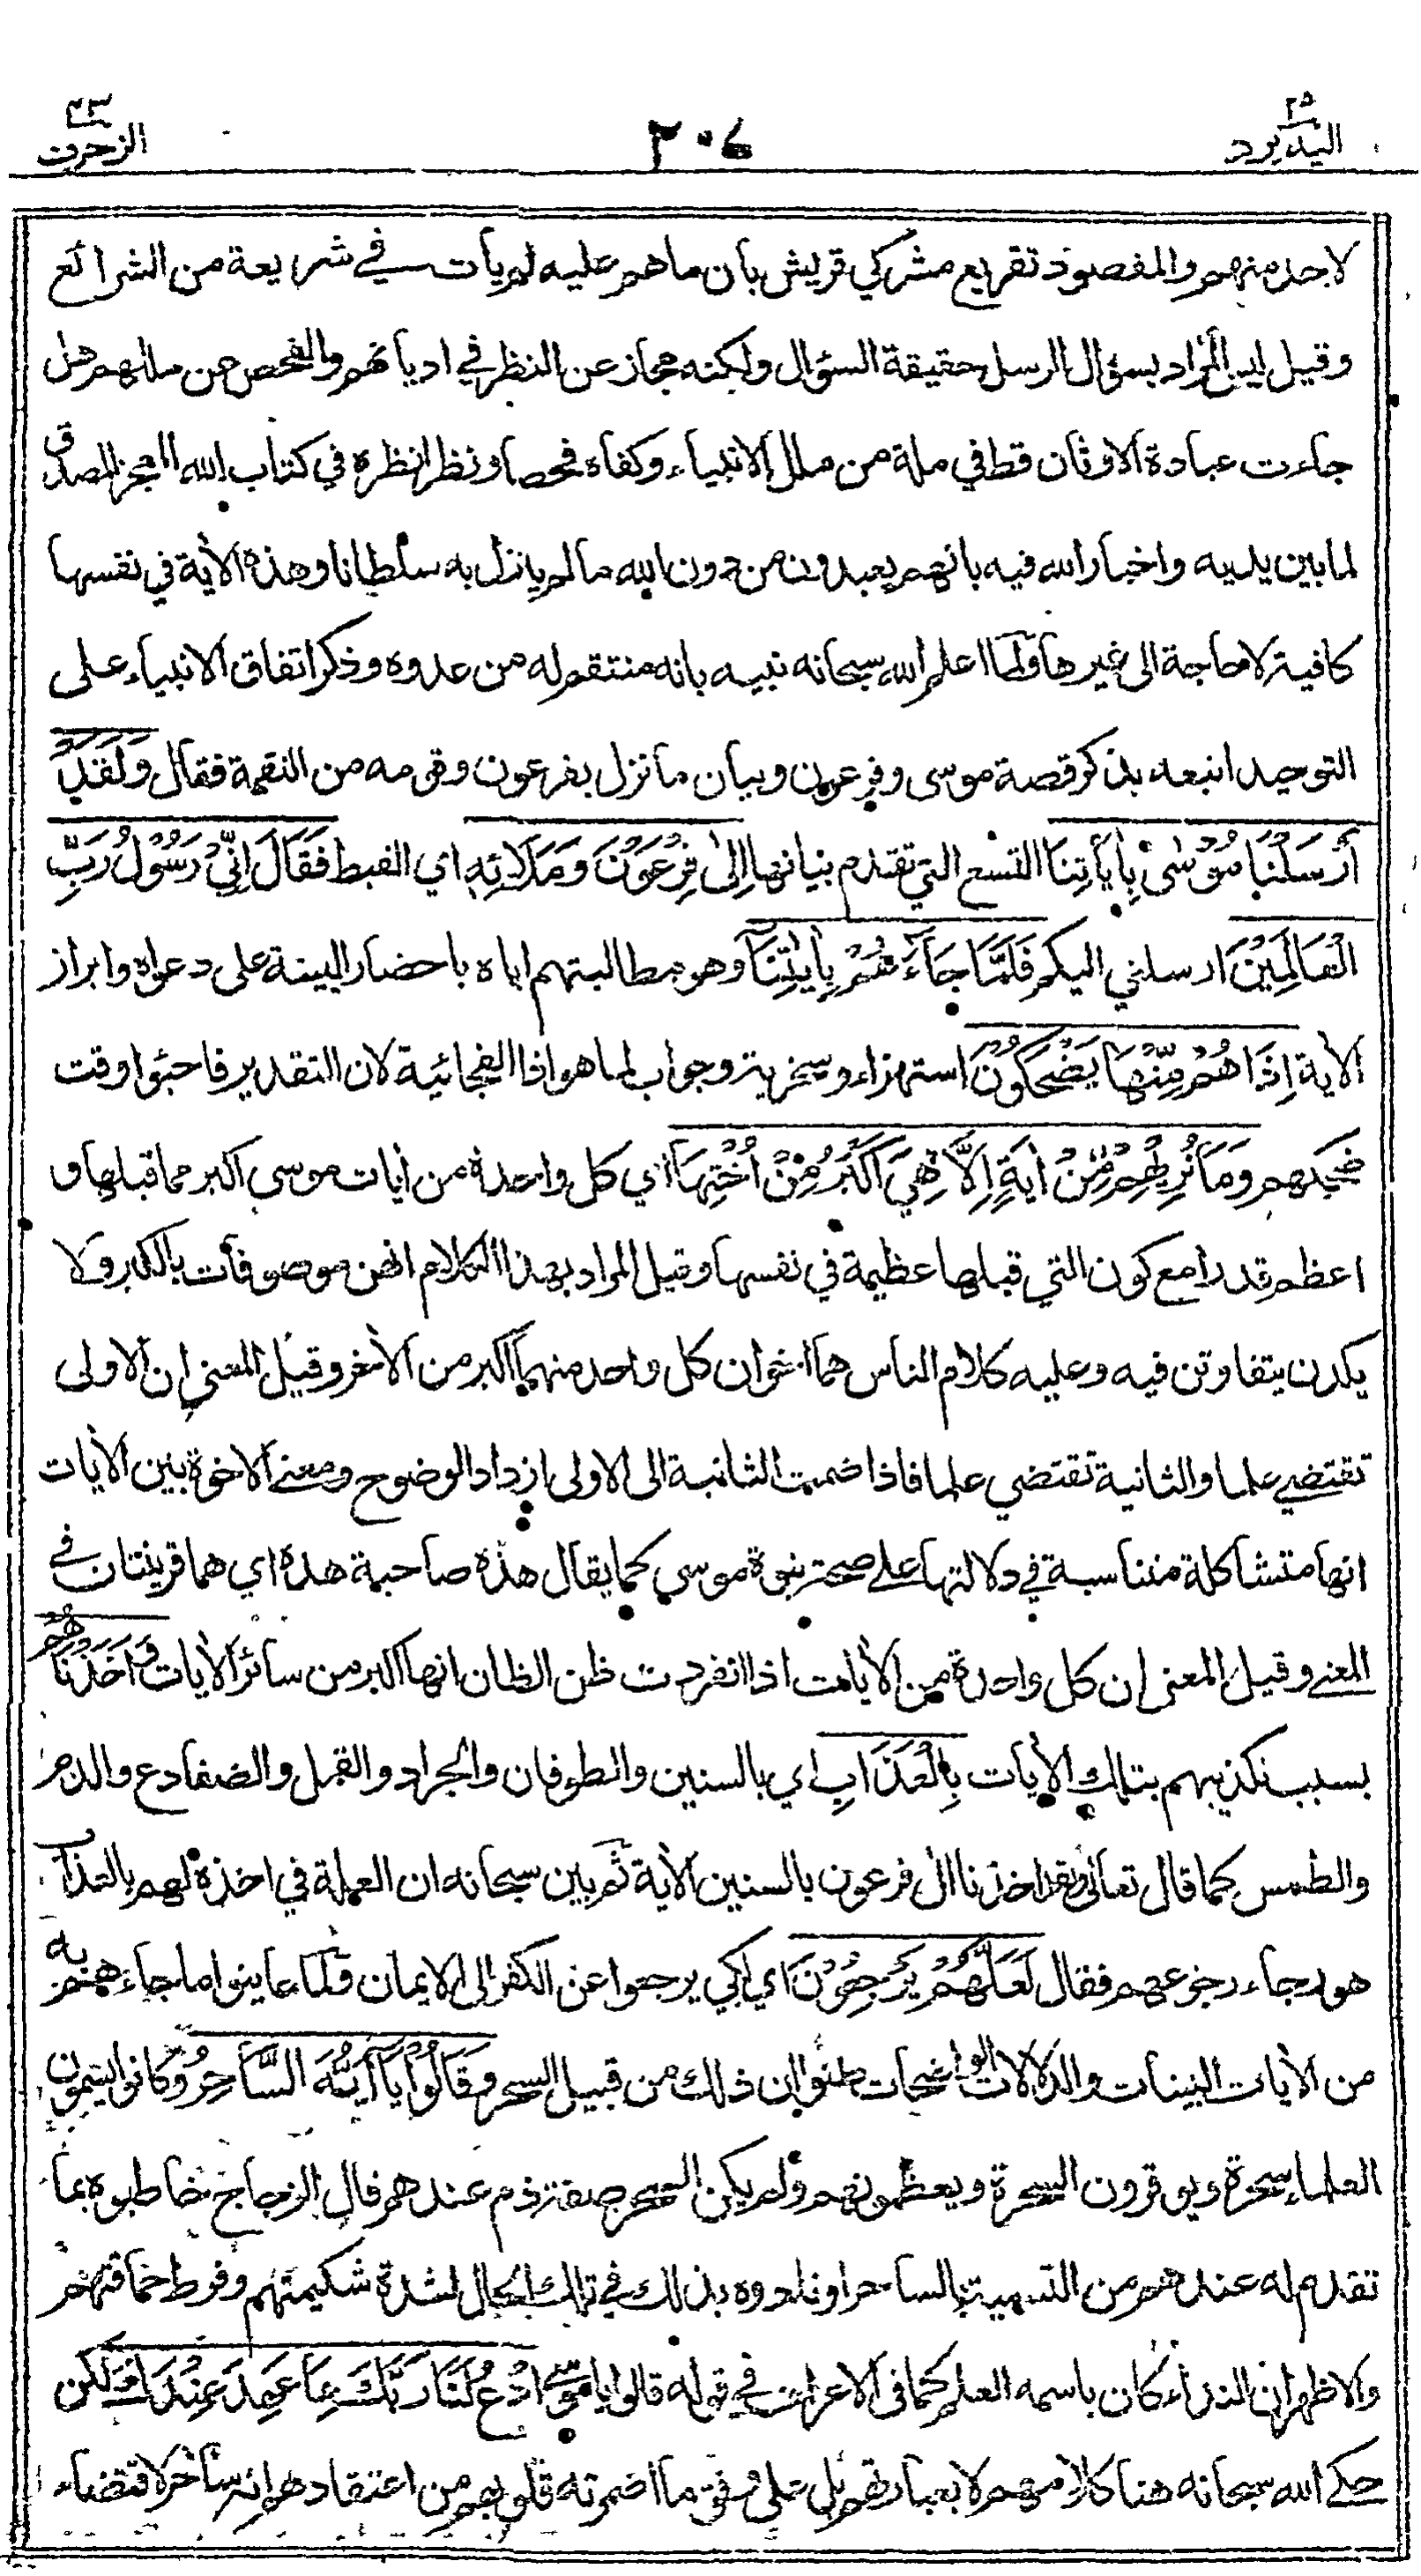 ٢٥
اليه يرد
٢٠٧
٤٣
الزخرف
لاحد منهم والمقصود تقريع مشركي قريش بأن ما هم عليه لم يأت في شريعة من الشرائع
وقيل ليس المراد بسؤال الرسل حقيقة السؤال ولكنه مجاز عن النظر في اديانهم والفحص عن مللهم هل
جاءت عبادة الاوثان قط في ملة من ملل الانبياء وكفاه فحصا ونظرا نظره في كتاب الله المعجز المصدق
لما بين يديه واخبار الله فيه بانهم يعبدون من دون الله ما لم ينزل به سلطانا وهذه الآية في نفسها
كافية لا حاجة الى غيرها ولما اعلم الله سبحانه نبيه بانه منتقم له من عدوه وذكر اتفاق الانبياء على
التوحيد اتبعه بذكر قصة موسى وفرعون وبيان ما نزل بفرعون وقومه من النقمة فقال وَلَقَدْ
أَرْسَلْنَا مُوْسٰى بِأٰيَاتِنَا التسع التي تقدم بيانها إِلىٰ فِرْعَوْنَ وَمَلَائِهِ اي القبط فَقَالَ اِنِّيْ رَسُوْلُ رَبِّ
الْعَالَمِيْنَ ارسلني اليكم فَلَمَّا جَاۤءَهُمْ بِأٰيٰتِنَاۤ وهو مطالبتهم اياه باحضار البينة على دعواه وابراز
الاٰية اِذَا هُمْ مِّنْهَا يَضْحَكُوْنَ استهزاء وسخرية وجواب لما هو اذا الفجائية لان التقدير فاجئوا وقت
ضحكهم وَمَا نُرِيْهِمْ مِّنْ اٰيَةٍ اِلَّا هِيَ اَكْبَرُ مِنْ اُخْتِهَا اي كل واحدة من اٰيات موسى اكبر مما قبلها و
اعظم قدرا مع كون التي قبلها عظيمة في نفسها وقيل المراد بهذا الكلام انهن موصوفات بالكبر ولا
يكدن يتفاوتن فيه وعليه كلام الناس هما اخوان كل واحد منهما اكبر من الاٰخر وقيل المعنى ان الاولى
تقتضي علما والثانية تقتضي علما فاذا ضممت الثانية الى الاولى ازداد الوضوح ومعنى الاخوة بين الاٰيات
انها متشاكلة متناسبة في دلالتها على صحة نبوة موسى كما يقال هذه صاحبة هذه اي هما قرينتان في
المعنى وقيل المعنى ان كل واحدة من الاٰيات اذا انفردت ظن الظان انها اكبر من سائر الاٰيات وَاَخَذْنَاهُمْ
بسبب تكذيبهم بتلك الاٰيات بِالْعَذَابِ اي بالسنين والطوفان والجراد والقمل والضفادع والدم
والطمس كما قال تعالى ولقد اخذنا اٰل فرعون بالسنين الاٰية ثم بين سبحانه ان العلة في اخذه لهم بالعذاب
هو رجاء رجوعهم فقال لَعَلَّهُمْ يَرْجِعُوْنَ اي لكي يرجعوا عن الكفر الى الايمان ولما عاينوا ما جاءهم به
من الاٰيات البينات والدلالات الواضحات ظنوا ان ذلك من قبيل السحر وَقَالُوْا يَاۤ اَيُّهَ السَّاحِرُ وكانوا يسمون
العلماء سحرة ويوقرون السحرة ويعظمونهم ولم يكن السحر صفة ذم عندهم قال الزجاج خاطبوه بما
تقدم له عندهم من التسمية بالساحر او نادوه بذلك في تلك الحال لشدة شكيمتهم وفرط حماقتهم
والاظهر ان النداء كان باسمه العلم كما في الاعراف في قوله قالوا يا موسى ادْعُ لَنَا رَبَّكَ بِمَا عَهِدَ عِنْدَكَ ولكن
حكى الله سبحانه هنا كلامهم لا بعبارتهم بل على وفق ما اضمرته قلوبهم من اعتقادهم انه ساحر لاقتضاء